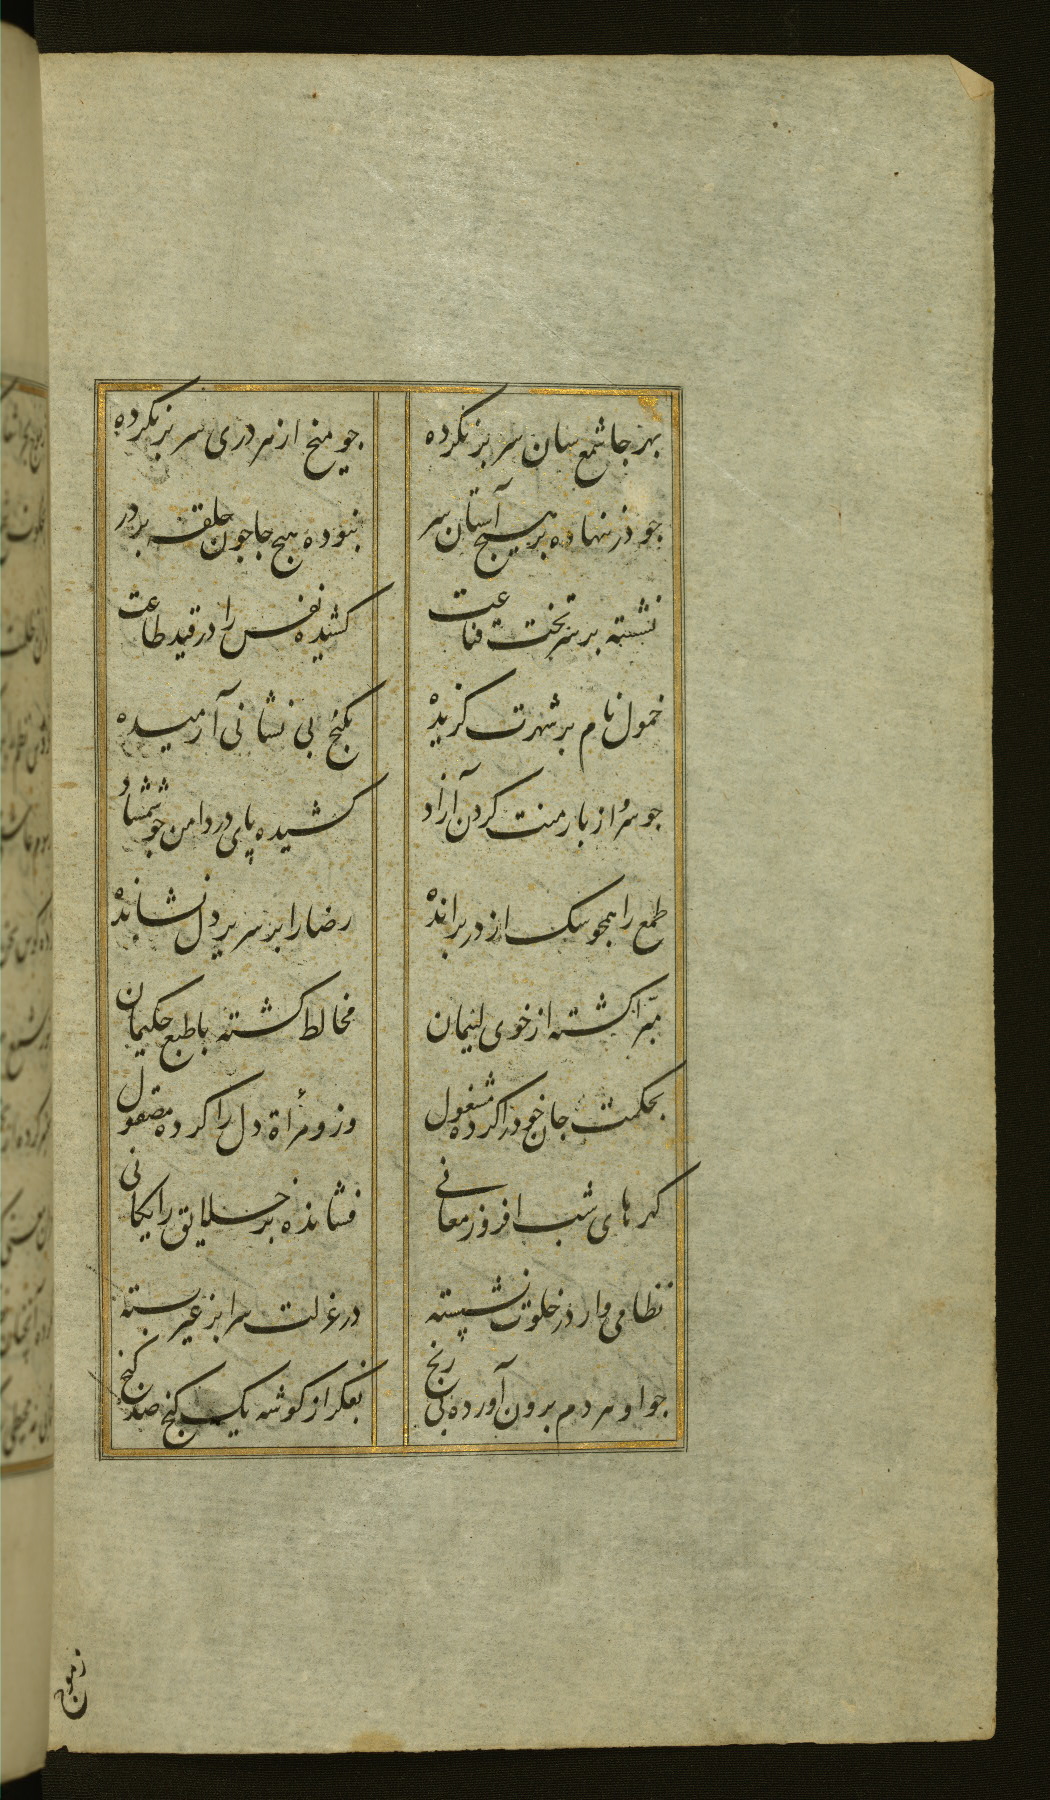 بهر جا شمع سان سر بر نکرده جو میخ از هر دری سر بر نکرده
جو در ننهاده بر هیچ آستان سر نبوده هیچ جا جون حلقه بر در
نشسته بر سر تخت قناعت کشیده نفس را در قید طاعت
خمول نام بر شهرت کزیده بکنج بی نشانی آرمیده
جو سرو از بار منت کردن آزاد کشیده پای در دامن جو شمشاد
طمع را همجو سک از در برانده رضا را بر سریر دل نشانده
مبّرا کشته از خوی لئیمان مخالط کشته با طبع حکیمان
بحکمت جان خود را کرده مشغول وز و مرأة دل را کرده مصقول
کهر های شب افروز معانی فشانده بر خلایق رایکانی
نظامی وار در خلوت نشسته در عزلت سرا بر غیر بسته
جو او هر دم برون آورده بی رنج بفکر از کوشه یک کنج صد کنج
زموج